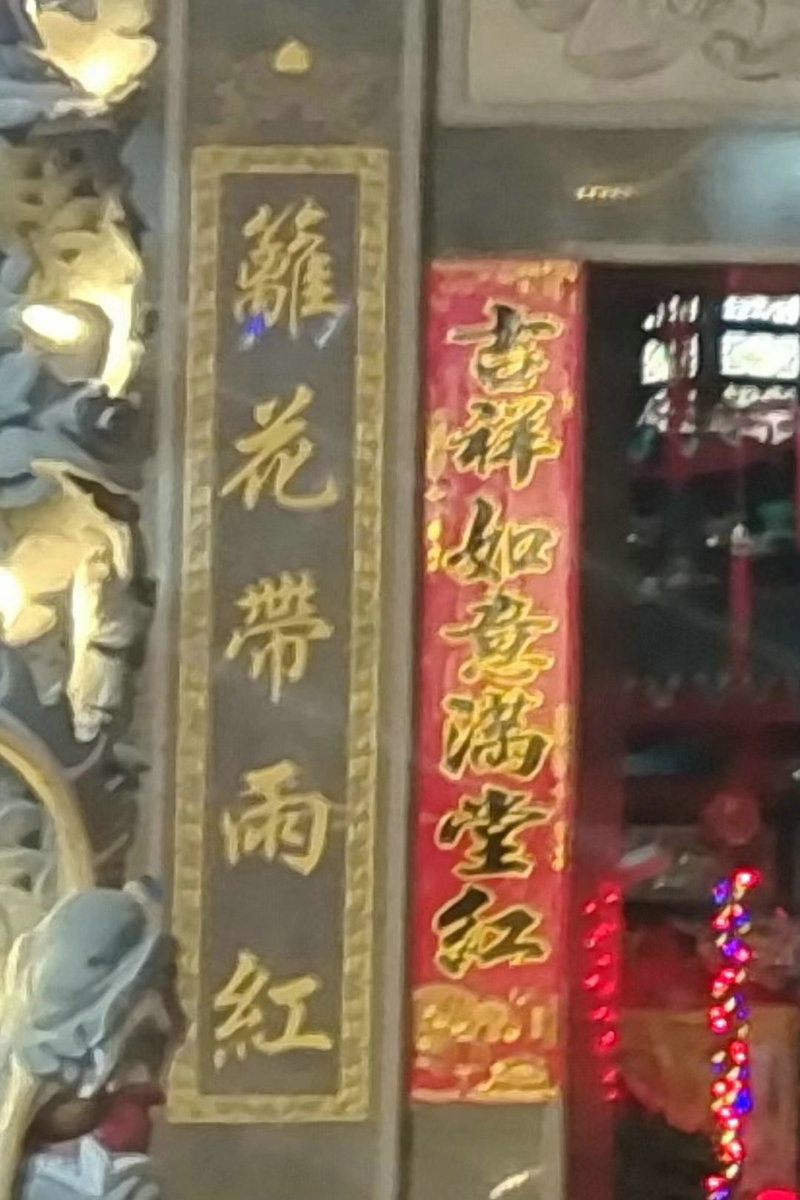 籬花帶雨紅
吉祥如意滿堂紅